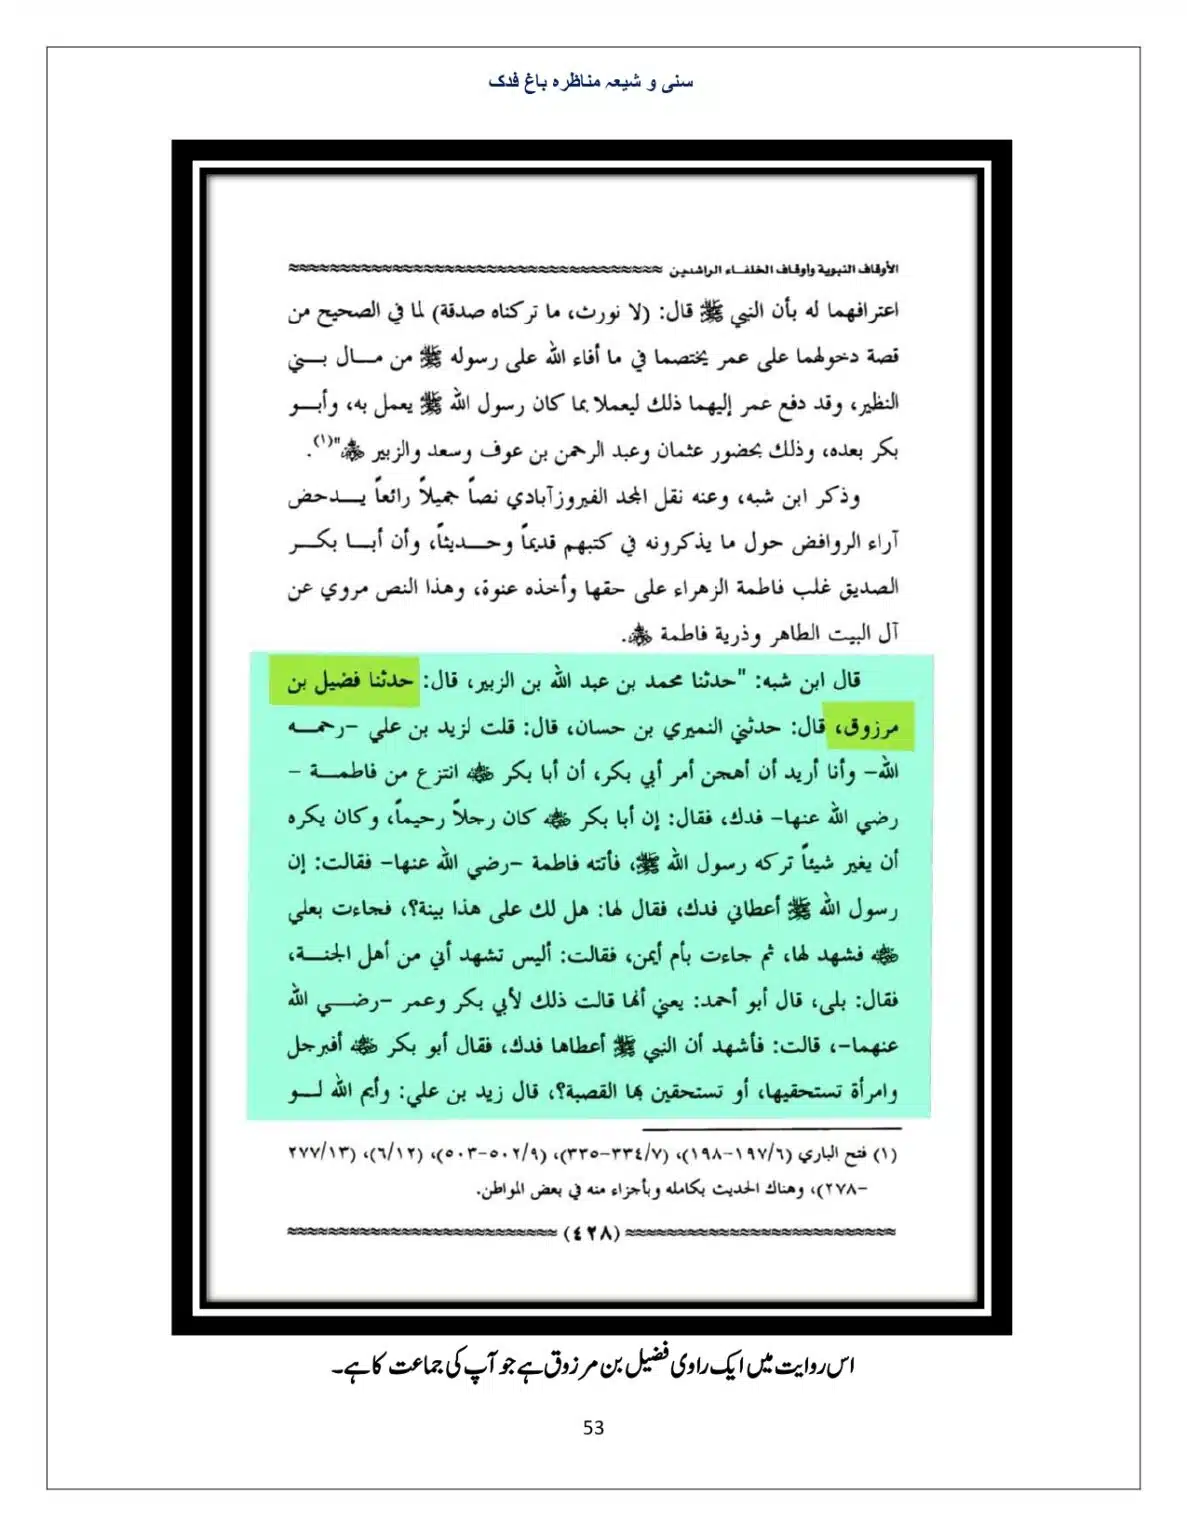 سنی و شیعہ مناظرہ باغ فدک
الأوقاف النبوية وأوقاف الخلفاء الراشدين
اعترافهما له بأن النبي ﷺ قال: (لا نورث، ما تركناه صدقة) لما في الصحيح من
قصة دخولهما على عمر يختصما في ما أفاء الله على رسوله ﷺ من مال بني
النظير، وقد دفع عمر إليهما ذلك ليعملا بما كان رسول الله ﷺ يعمل به، وأبو
بكر بعده، وذلك بحضور عثمان وعبد الرحمن بن عوف وسعد والزبير ﷺ"(١).
وذكر ابن شبه، وعنه نقل المجد الفيروزآبادي نصاً جميلاً رائعاً يدحض
آراء الروافض حول ما يذكرونه في كتبهم قديماً وحديثاً، وأن أبا بكر
الصديق غلب فاطمة الزهراء على حقها وأخذه عنوة، وهذا النص مروي عن
آل البيت الطاهر وذرية فاطمة.
قال ابن شبه: "حدثنا محمد بن عبد الله بن الزبير، قال: حدثنا فضيل بن
مرزوق، قال: حدثني النميري بن حسان، قال: قلت لزيد بن علي –رحمه
الله– وأنا أريد أن أهجن أمر أبي بكر، أن أبا بكر انتزع من فاطمة –
رضي الله عنها– فدك، فقال: إن أبا بكر كان رجلاً رحيماً، وكان يكره
أن يغير شيئاً تركه رسول الله ﷺ، فأتته فاطمة –رضي الله عنها– فقالت: إن
رسول الله ﷺ أعطاني فدك، فقال لها: هل لك على هذا بينة؟، فجاءت بعلي
فشهد لها، ثم جاءت بأم أيمن، فقالت: أليس تشهد أني من أهل الجنة،
فقال: بلى، قال أبو أحمد: يعني أنها قالت ذلك لأبي بكر وعمر –رضي الله
عنهما–، قالت: فأشهد أن النبي ﷺ أعطاها فدك، فقال أبو بكر أفبرجل
وامرأة تستحقيها، أو تستحقين بها القصبة؟، قال زيد بن علي: وأيم الله لو
(١) فتح الباري (١٩٧/٦–١٩٨)، (٣٣٤/٧–٣٣٥)، (٥٠٢/٩–٥٠٣)، (٦/١٢)، (٢٧٧/١٣
–٢٧٨)، وهناك الحديث بكامله وبأجزاء منه في بعض المواطن.
(٤٢٨)
اس روایت میں ایک راوی فضیل بن مرزوق ہے جو آپ کی جماعت کا ہے۔
53